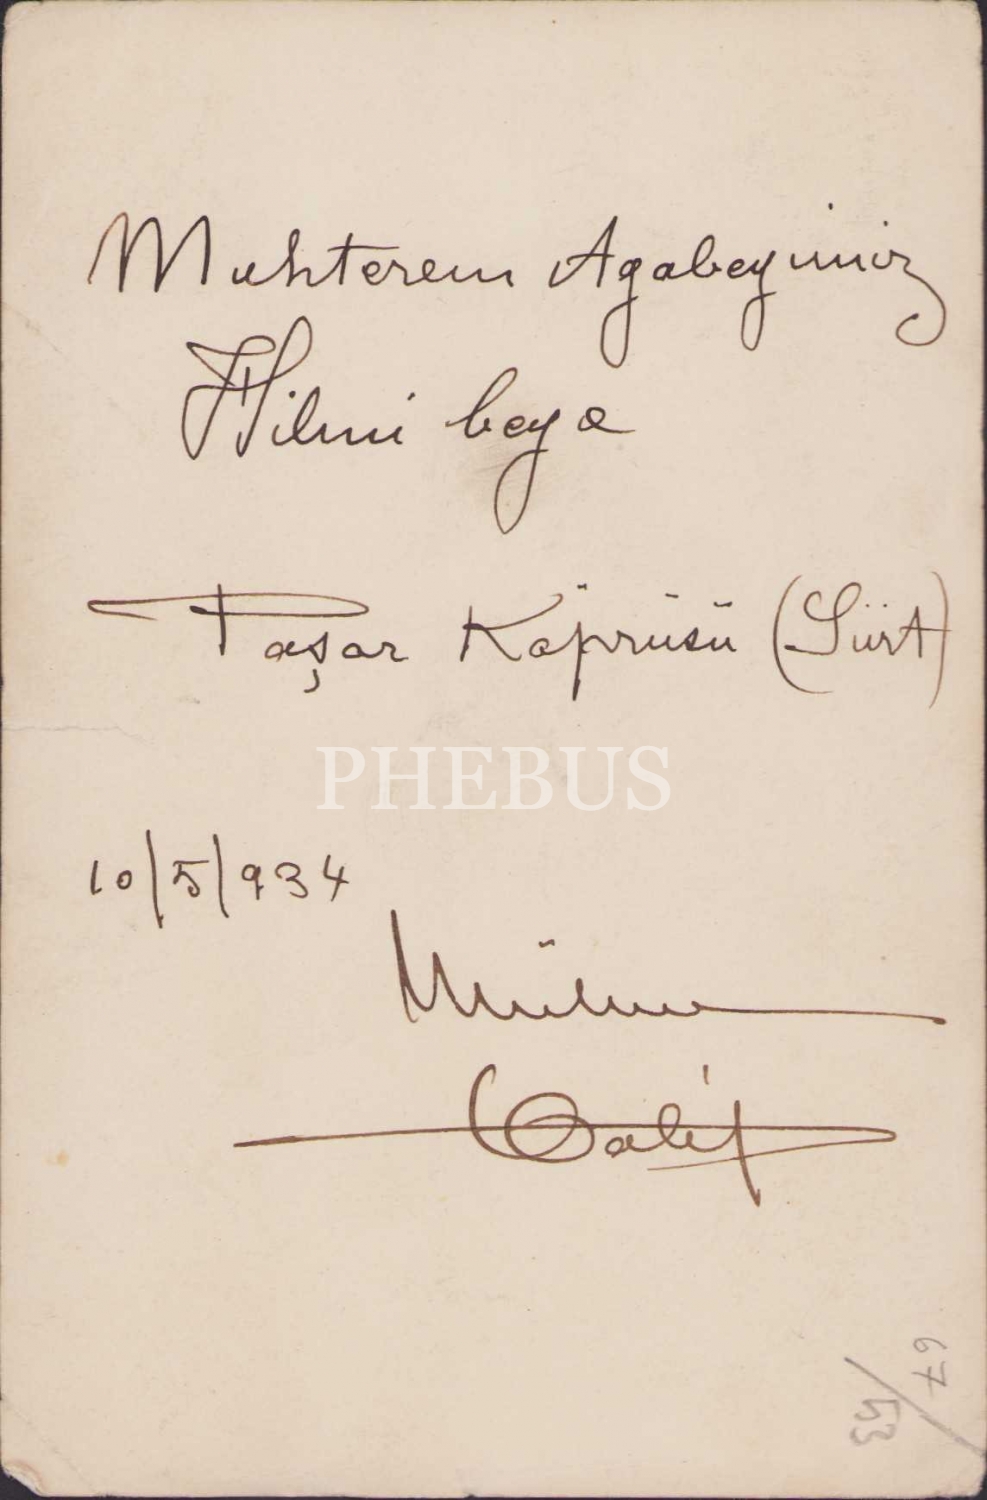 Muhterem Agabeyimiz
Hilmi beye
Paşar Köprüsü (Siirt)
PHEBUS
10/5/934
Galip
67/53